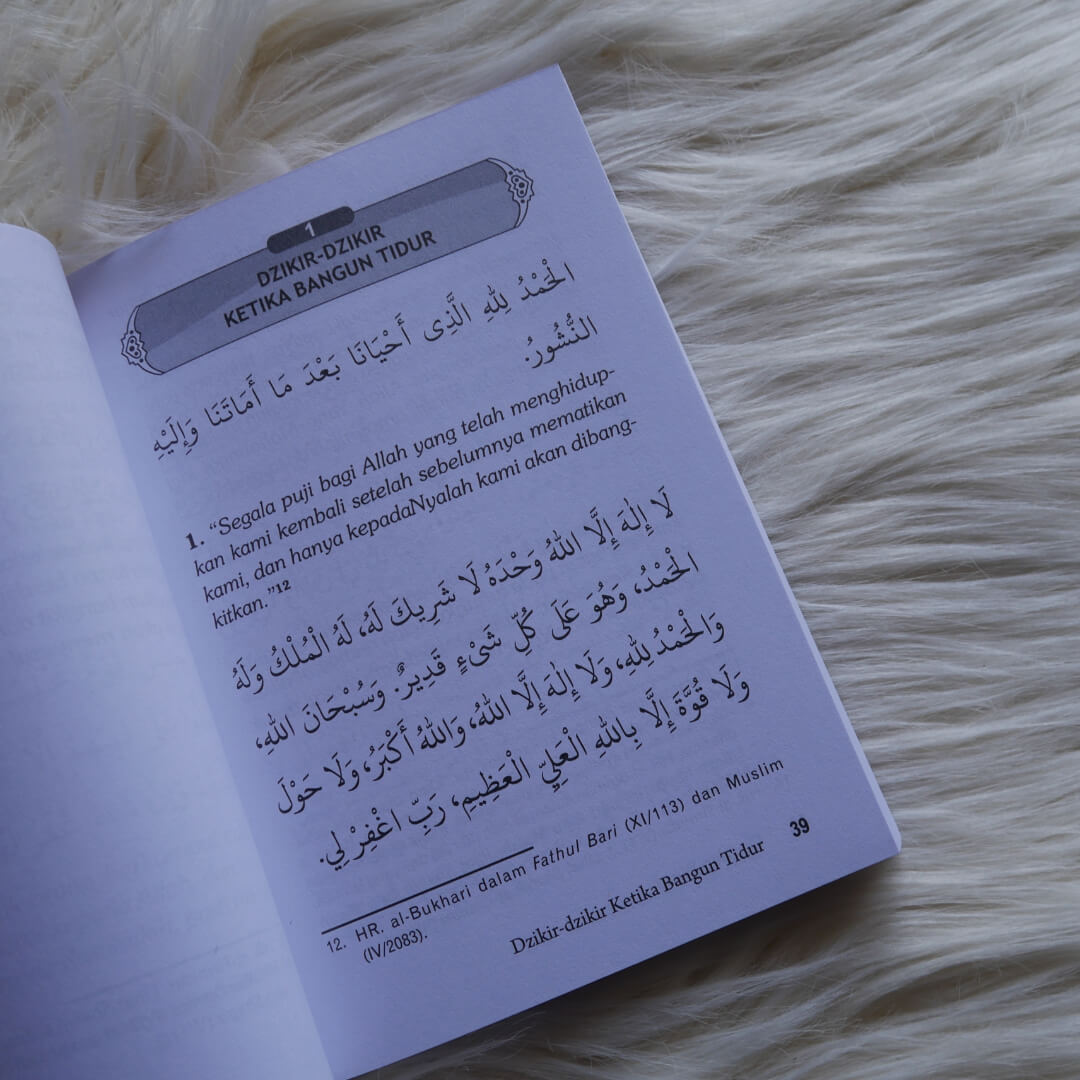 1
DZIKIR-DZIKIR
KETIKA BANGUN TIDUR
الْحَمْدُ لِلّٰهِ الَّذِى أَحْيَانَا بَعْدَ مَا أَمَاتَنَا وَإِلَيْهِ
النُّشُورُ.
1. “Segala puji bagi Allah yang telah menghidup-
kan kami kembali setelah sebelumnya mematikan
kami, dan hanya kepadaNyalah kami akan dibang-
kitkan.”12
لَا إِلٰهَ إِلَّا اللّٰهُ وَحْدَهُ لَا شَرِيكَ لَهُ، لَهُ الْمُلْكُ وَلَهُ
الْحَمْدُ، وَهُوَ عَلَى كُلِّ شَىْءٍ قَدِيرٌ. وَسُبْحَانَ اللّٰهِ،
وَالْحَمْدُ لِلّٰهِ، وَلَا إِلٰهَ إِلَّا اللّٰهُ، وَاللّٰهُ أَكْبَرُ، وَلَا حَوْلَ
وَلَا قُوَّةَ إِلَّا بِاللّٰهِ الْعَلِيِّ الْعَظِيمِ، رَبِّ اغْفِرْ لِي.
12. HR. al-Bukhari dalam Fathul Bari (XI/113) dan Muslim
(IV/2083).
Dzikir-dzikir Ketika Bangun Tidur 39